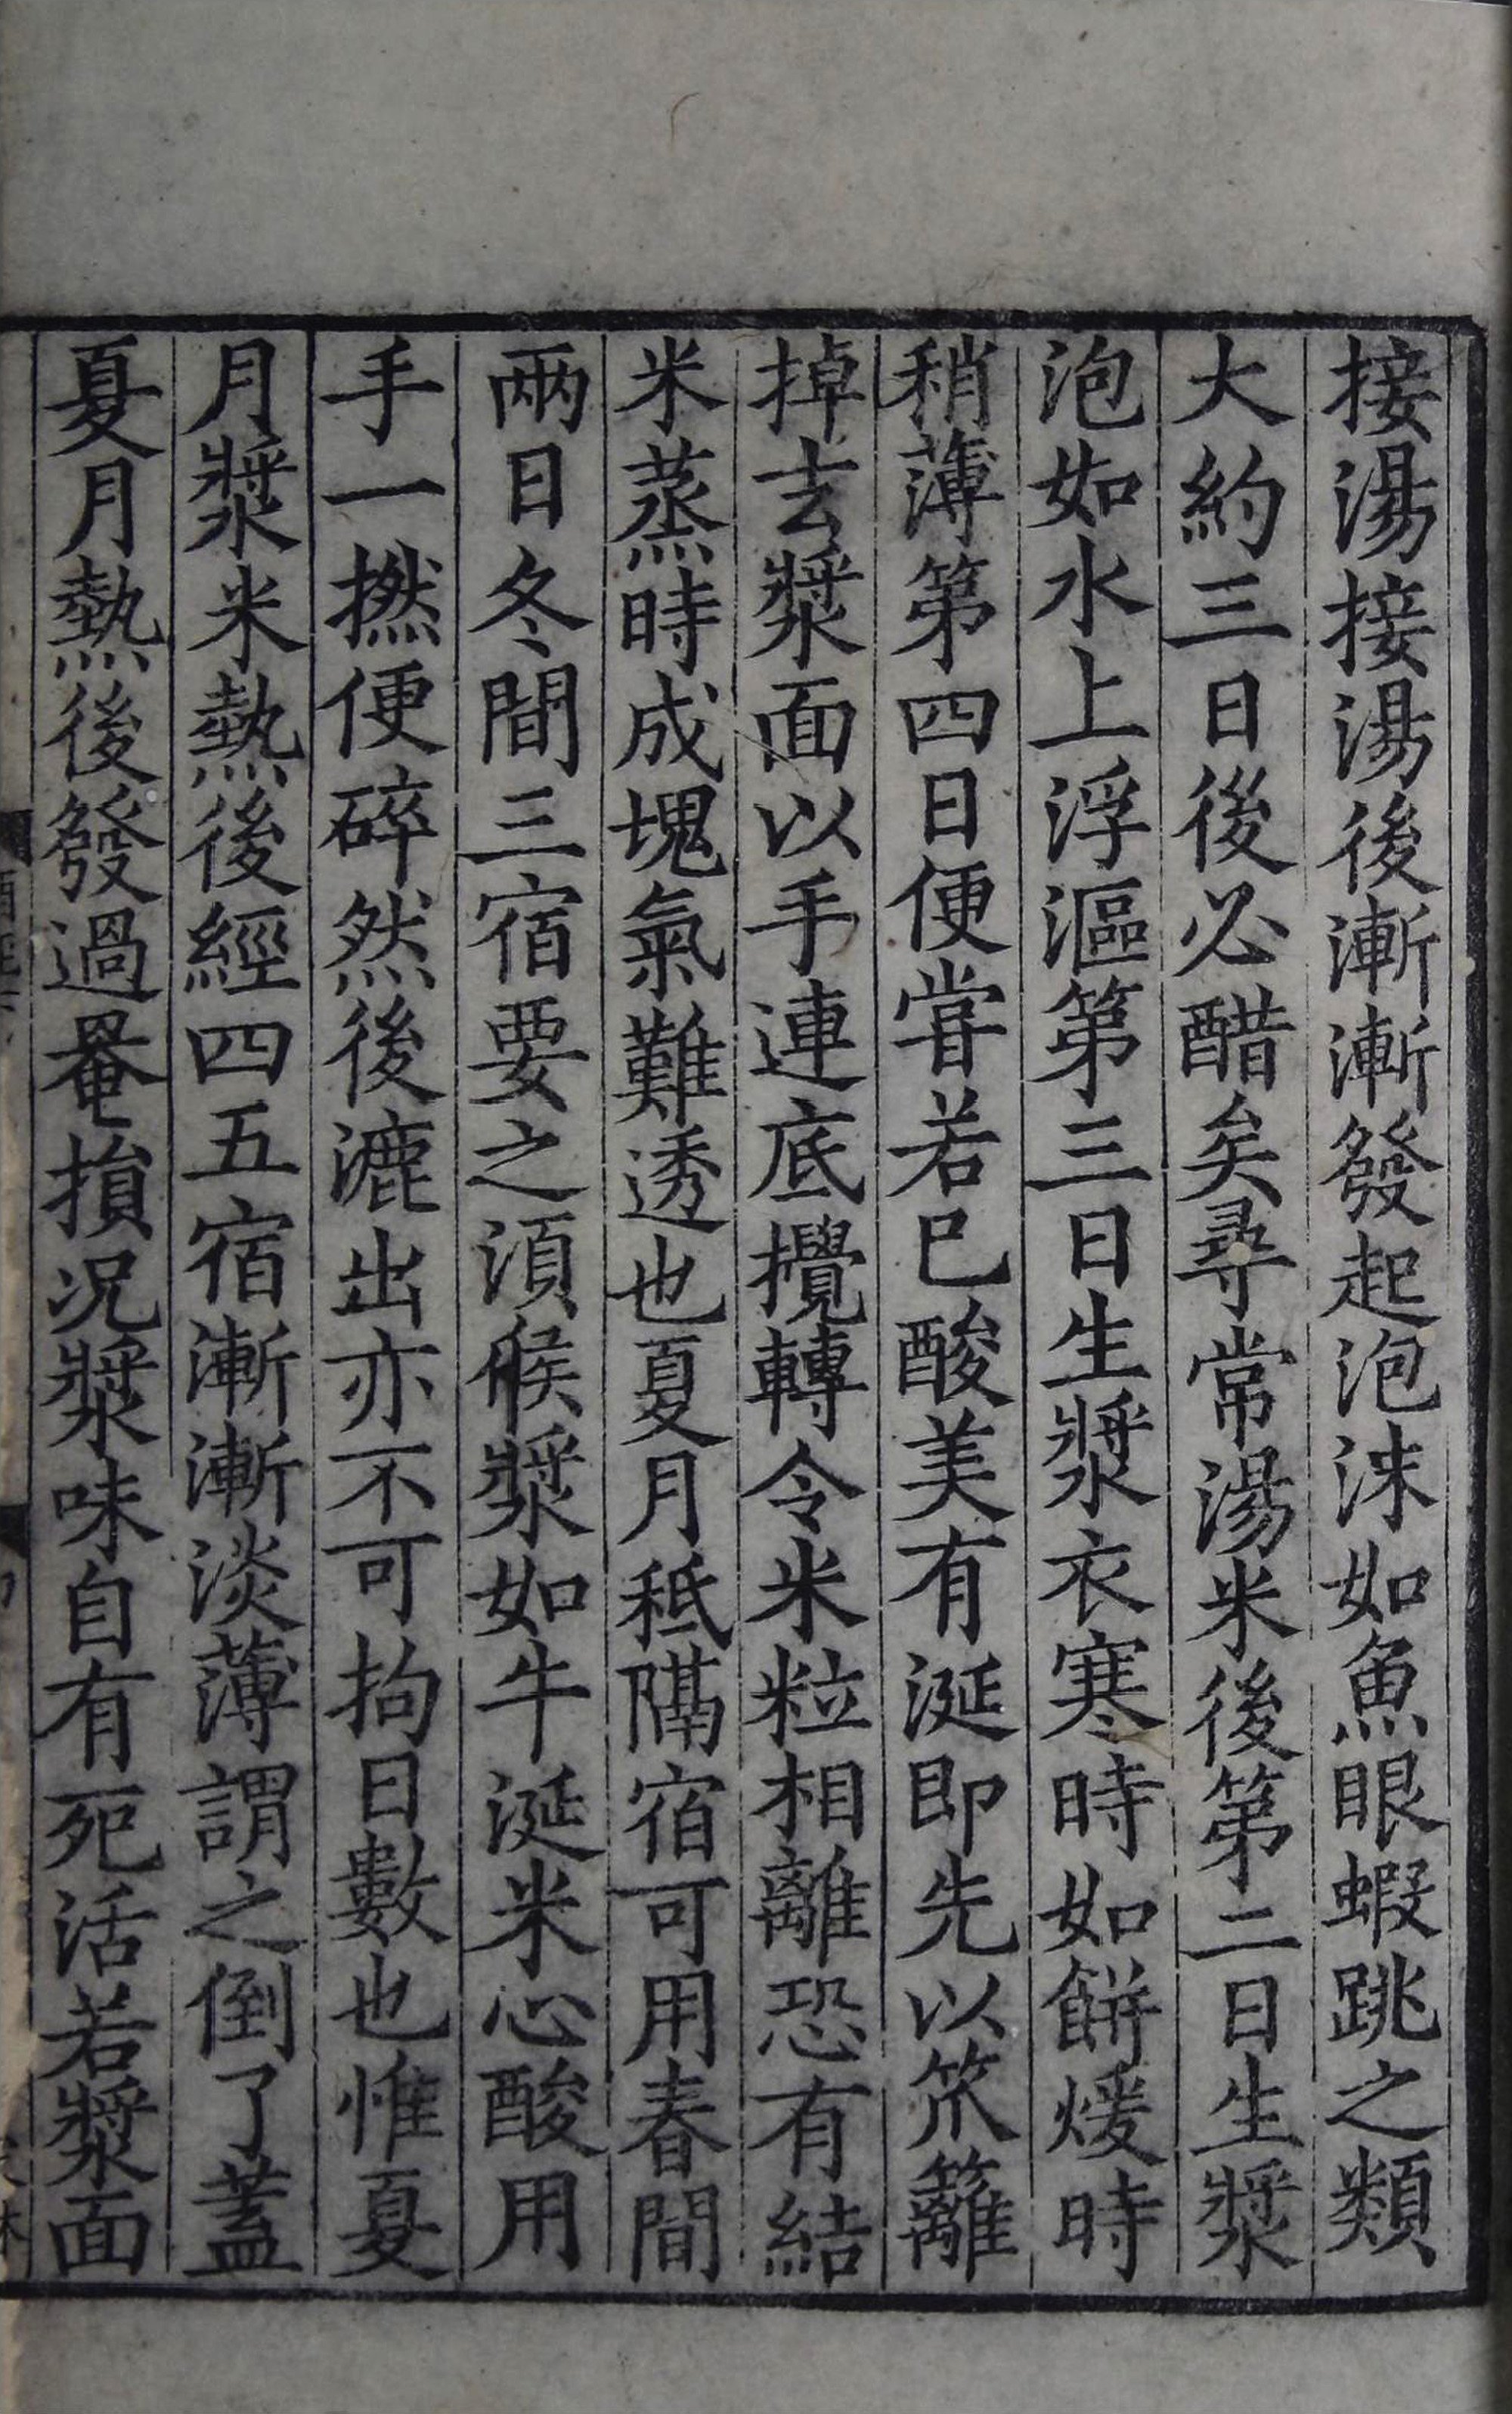 接湯接湯後漸漸發起泡沫如魚眼蝦跳之類
大約三日後必醋矣尋常湯米後第二日生漿
泡如水上浮漚第三日生漿衣寒時如餅煖時
稍薄第四日便嘗若巳酸美有涎即先以笊籬
掉去漿面以手連底攪轉令米粒相離恐有結
米蒸時成塊氣難透也夏月秪隔宿可用春間
兩日冬間三宿要之湏候漿如牛涎米心酸用
手一撚便碎然後漉出亦不可拘日數也惟夏
月漿米熱後經四五宿漸漸淡薄謂之倒了蓋
夏月熱後發過罨損况漿味自有死活若漿面